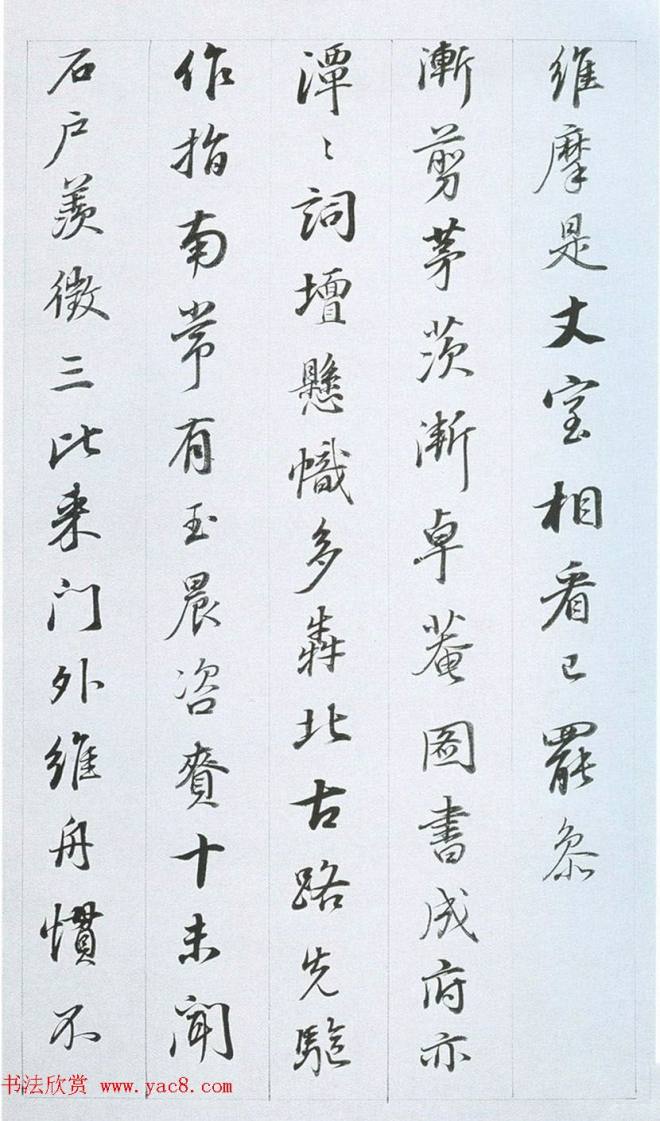 维摩是丈室相看已罷參
漸剪茅茨漸卓菴圖書成府亦
潭〻詞壇懸幟多犇北古路先驅
作指南常有玉晨咨賚十未聞
石户羨徵三比来门外维舟慣不
书法欣赏 www.yac8.com